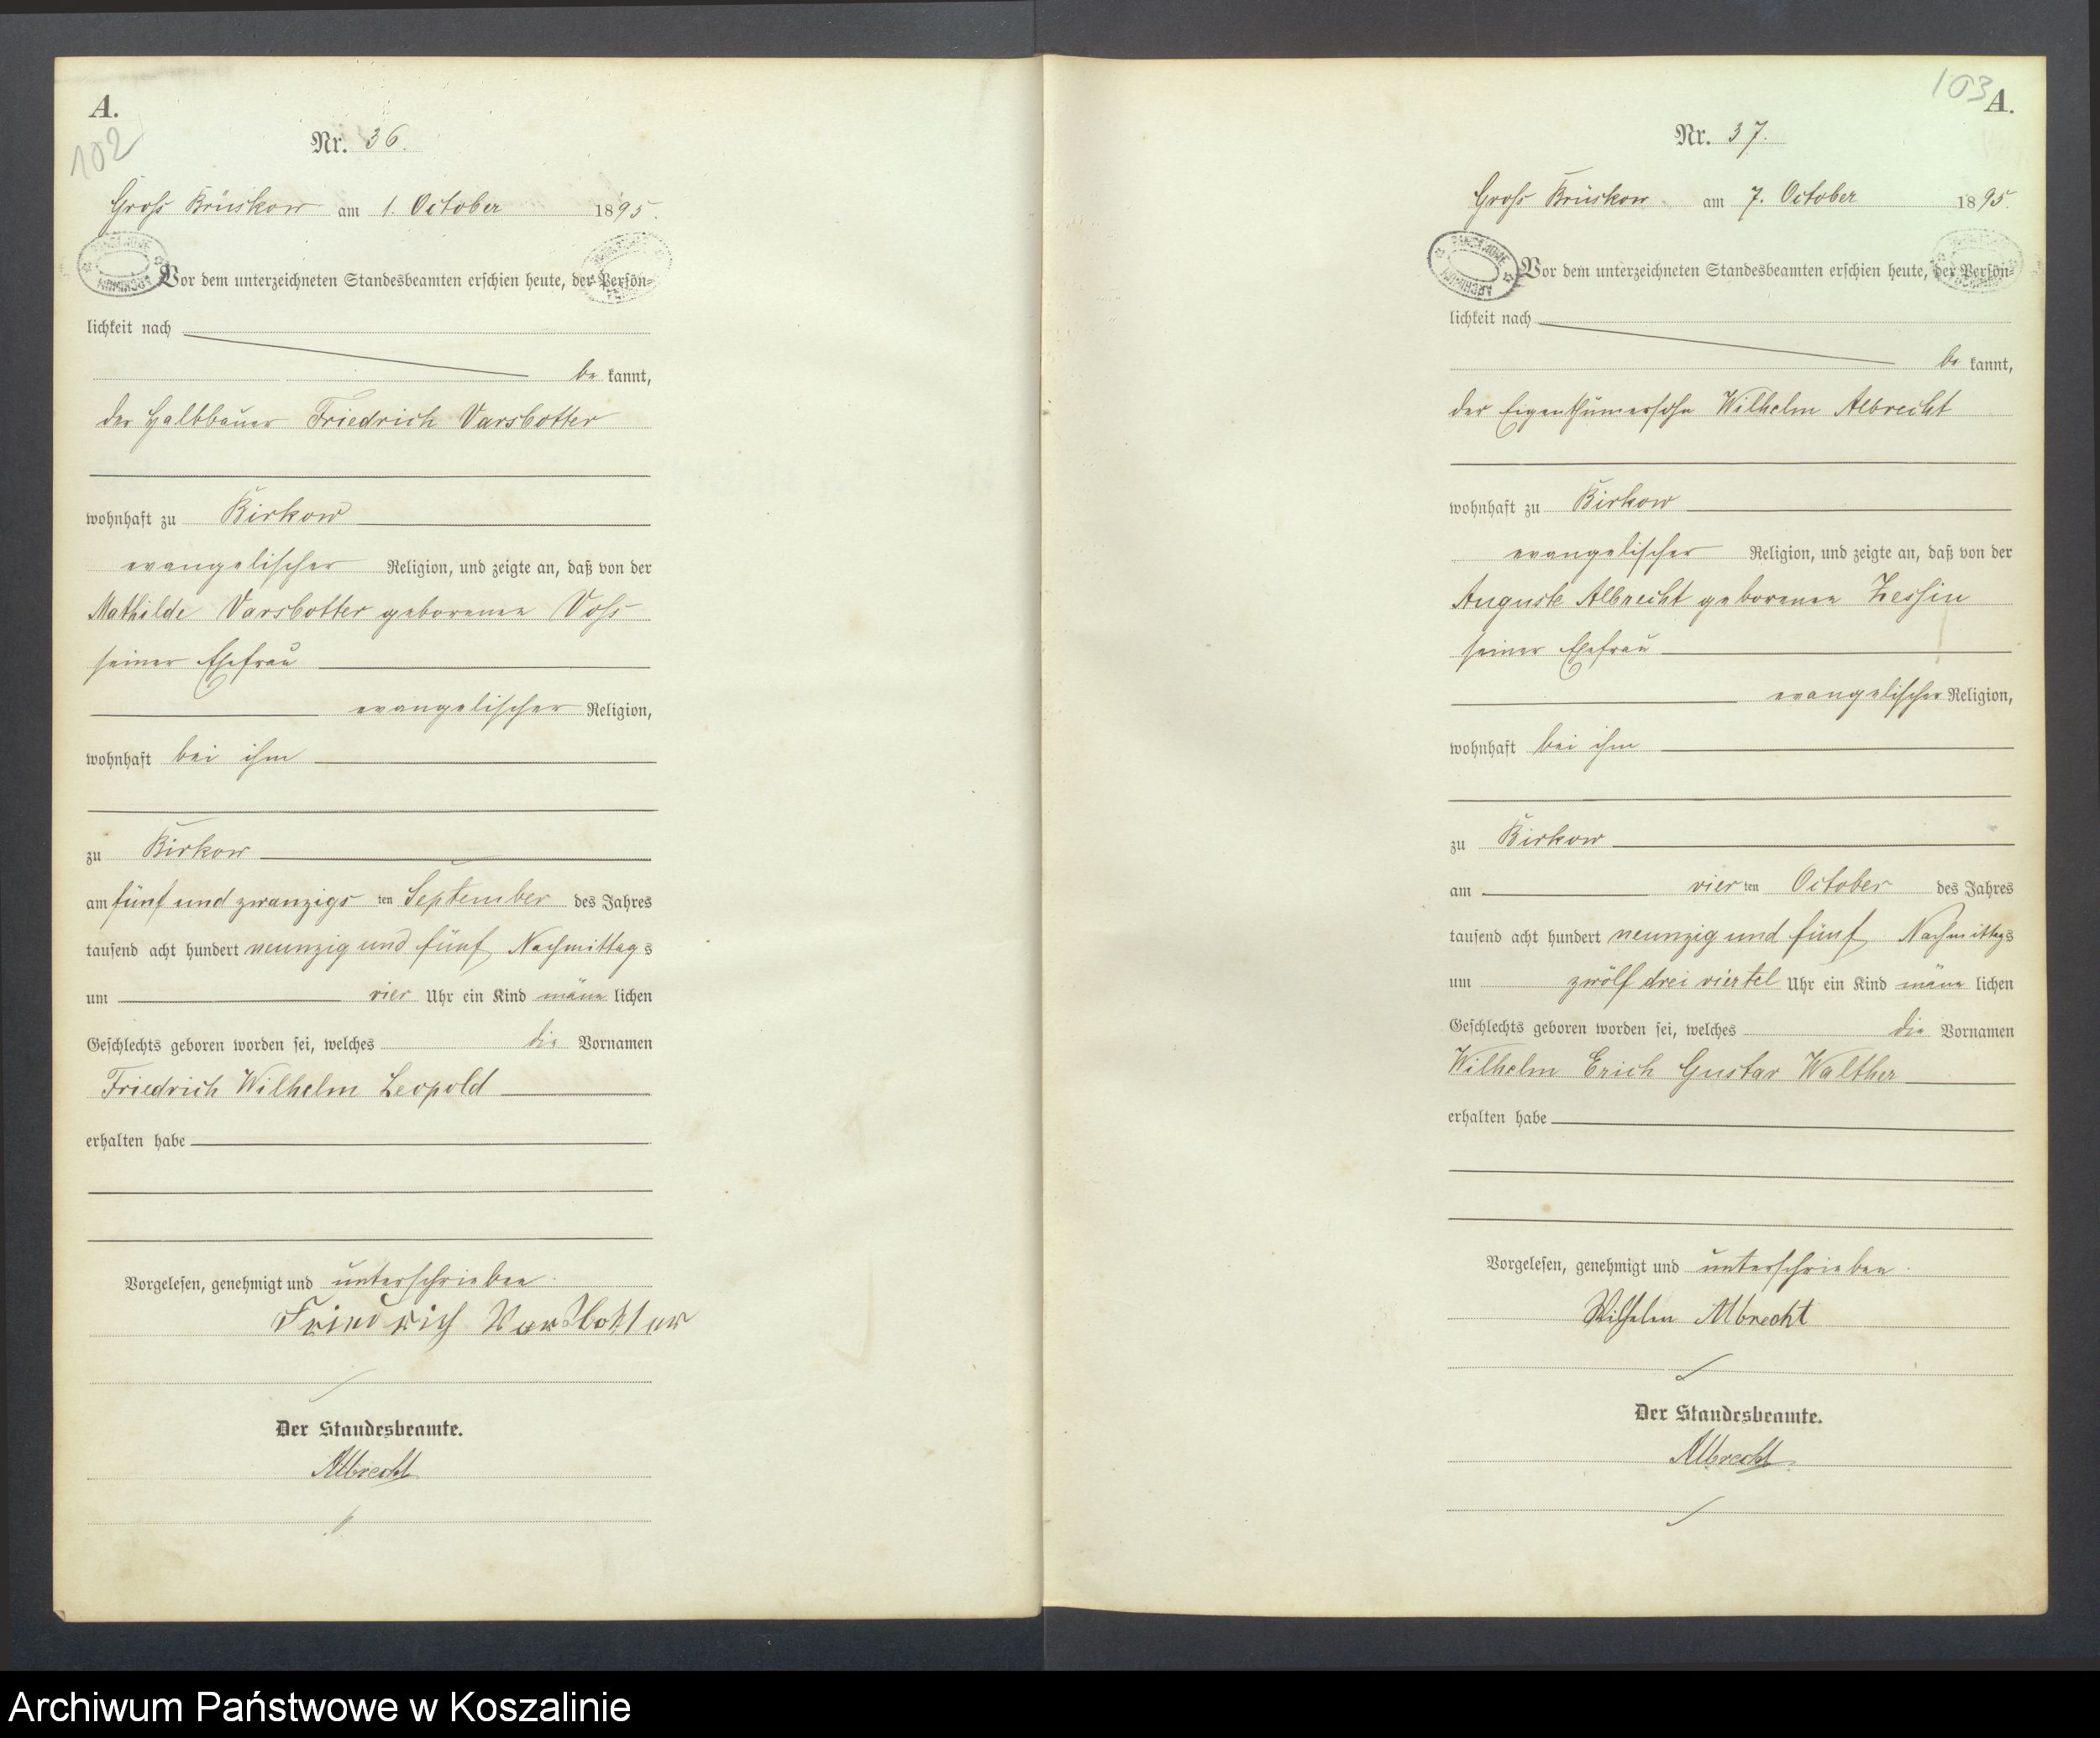 A.
102
Nr. 36.
Gross Brüskow am 1. October 1895.
Vor dem unterzeichneten Standesbeamten erschien heute, der Persön-
lichkeit nach
be kannt,
der Halbbauer Friedrich Varsbotter
wohnhaft zu Birkow
evangelischer Religion, und zeigte an, daß von der
Mathilde Varsbotter geborenen Voss
seiner Ehefrau
evangelischer Religion,
wohnhaft bei ihm
zu Birkow
am fünf und zwanzigs ten September des Jahres
tausend acht hundert neunzig und fünf Nachmittag s
um vier Uhr ein Kind männ lichen
Geschlechts geboren worden sei, welches die Vornamen
Friedrich Wilhelm Leopold
erhalten habe
Vorgelesen, genehmigt und unterschrieben.
Friedrich Varsbotter
Der Standesbeamte.
Albrecht
103
A.
Nr. 37.
Gross Brüskow am 7. October 1895.
Vor dem unterzeichneten Standesbeamten erschien heute, der Persön-
lichkeit nach
be kannt,
der Eigenthümersohn Wilhelm Albrecht
wohnhaft zu Birkow
evangelischer Religion, und zeigte an, daß von der
Auguste Albrecht geborenen Zessin
seiner Ehefrau
evangelischer Religion,
wohnhaft bei ihm
zu Birkow
am vier ten October des Jahres
tausend acht hundert neunzig und fünf Nachmittags
um zwölf drei viertel Uhr ein Kind männ lichen
Geschlechts geboren worden sei, welches die Vornamen
Wilhelm Erich Gustav Walther
erhalten habe
Vorgelesen, genehmigt und unterschrieben.
Wilhelm Albrecht
Der Standesbeamte.
Albrecht
Archiwum Państwowe w Koszalinie